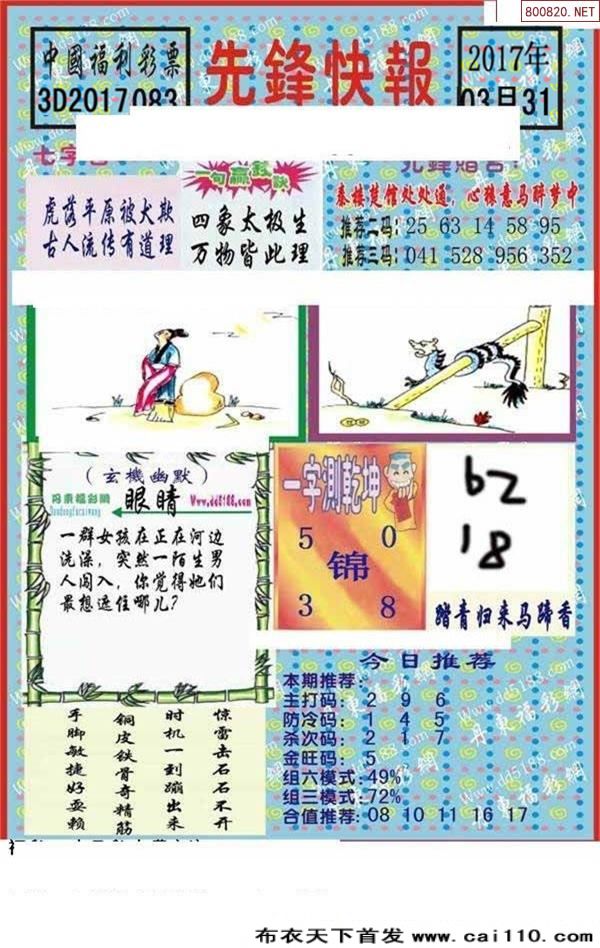 800820.NET
中國福利彩票
3D2017083
先鋒快報
2017年
03月31
七字
一句赢錢訣
先鋒賭
虎落平原被犬欺
古人流传有道理
四象太极生
万物皆此理
秦楼楚馆处处通，心猿意马醉梦中
推荐二码：25 63 14 58 95
推荐三码：041 528 956 352
（玄機幽默）
丹東福彩網
Dandongfucaiwang
眼睛
Www.dd5188.com
一群女孩在正在河边
洗澡，突然一陌生男
人闯入，你觉得她们
最想遮住哪儿？
一字测乾坤
5 0
锦
3 8
62
18
踏青归来马蹄香
今日推荐
本期推荐：
主打码：2 9 6
防冷码：1 4 5
杀次码：2 1 7
金旺码：5
组六模式：49%
组三模式：72%
合值推荐：08 10 11 16 17
惊雷击石石不开
时机一到蹦出来
铜皮铁骨奇精筋
手脚敏捷好耍赖
布衣天下首发 www.cai110.com